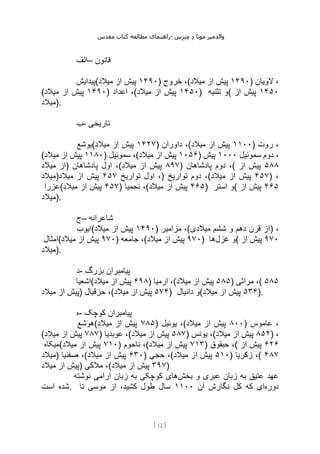 والدمیر مونا و میرس -راهنمای مطالعه کتاب مقدس
قانون –الف
پیدایش(۱۴۹۰ پیش از میلاد)، خروج (۱۴۹۰ پیش از میلاد)، لاویان (۱۴۹۰ ،
پیش از میلاد)، اعداد (۱۴۹۰ پیش از میلاد)، و تثنیه (۱۴۵۰ پیش از
میلاد).
ب- تاریخی
یوشع(۱۴۲۷ پیش از میلاد)، داوران (۱۱۰۰ پیش از میلاد)، روت ،
(۱۱۸۰ پیش از میلاد)، سموئیل (۱۰۵۴ پیش از میلاد)، دوم سموئیل ۱۰۰۰ پیش
از میلاد)، اول پادشاهان (۸۹۷ پیش از میلاد)، دوم پادشاهان (۵۸۸ پیش از
میلاد)، اول تواریخ ۴۵۷ پیش از میلاد)، دوم تواریخ (۴۵۷ پیش از میلاد)، ،
عزرا(۴۵۷ پیش از میلاد)، نحمیا (۴۶۵ پیش از میلاد)، و استر (۴۶۵ پیش از
میلاد).
ج– شاعرانه
ایوب(۱۴۹۰ پیش از میلاد)، مزامیر (از قرن دهم و ششم میلادی)، ،
امثال(۹۷۰ پیش از میلاد)، جامعه (۹۷۰ پیش از میلاد)، و غزل‌ها (۹۷۰ پیش از
میلاد).
د- پیامبران بزرگ
اشعیا(۶۹۸ پیش از میلاد)، ارمیا (۵۸۵ پیش از میلاد)، مراثی (۵۸۵ ،
پیش از میلاد)، حزقیال (۵۷۴ پیش از میلاد)، و دانیال (۵۳۴ پیش از میلاد).
ه- پیامبران کوچک
هوشع(۷۸۵ پیش از میلاد)، یوئیل (۸۰۰ پیش از میلاد)، عاموس ،
(۷۸۷ پیش از میلاد)، عوبدیا (۵۸۷ پیش از میلاد)، یونس (۸۵۴ پیش از میلاد)، ،
میکاه(۷۱۰ پیش از میلاد)، ناحوم (۷۱۳ پیش از میلاد)، حبقوق (۶۲۶ پیش از
میلاد)، صفنیا (۶۳۰ پیش از میلاد)، حجی (۵۱۰ پیش از میلاد)، زکریا (۴۸۷
پیش از میلاد)، ملاکی (۳۹۷ پیش از میلاد)
عهد عتیق به زبان عبری و بخش‌های کوچکی به زبان آرامی نوشته
شده است. دوره‌ای که کل نگارش آن ۱۱۰۰ سال طول کشید، از موسی تا
| 12 |